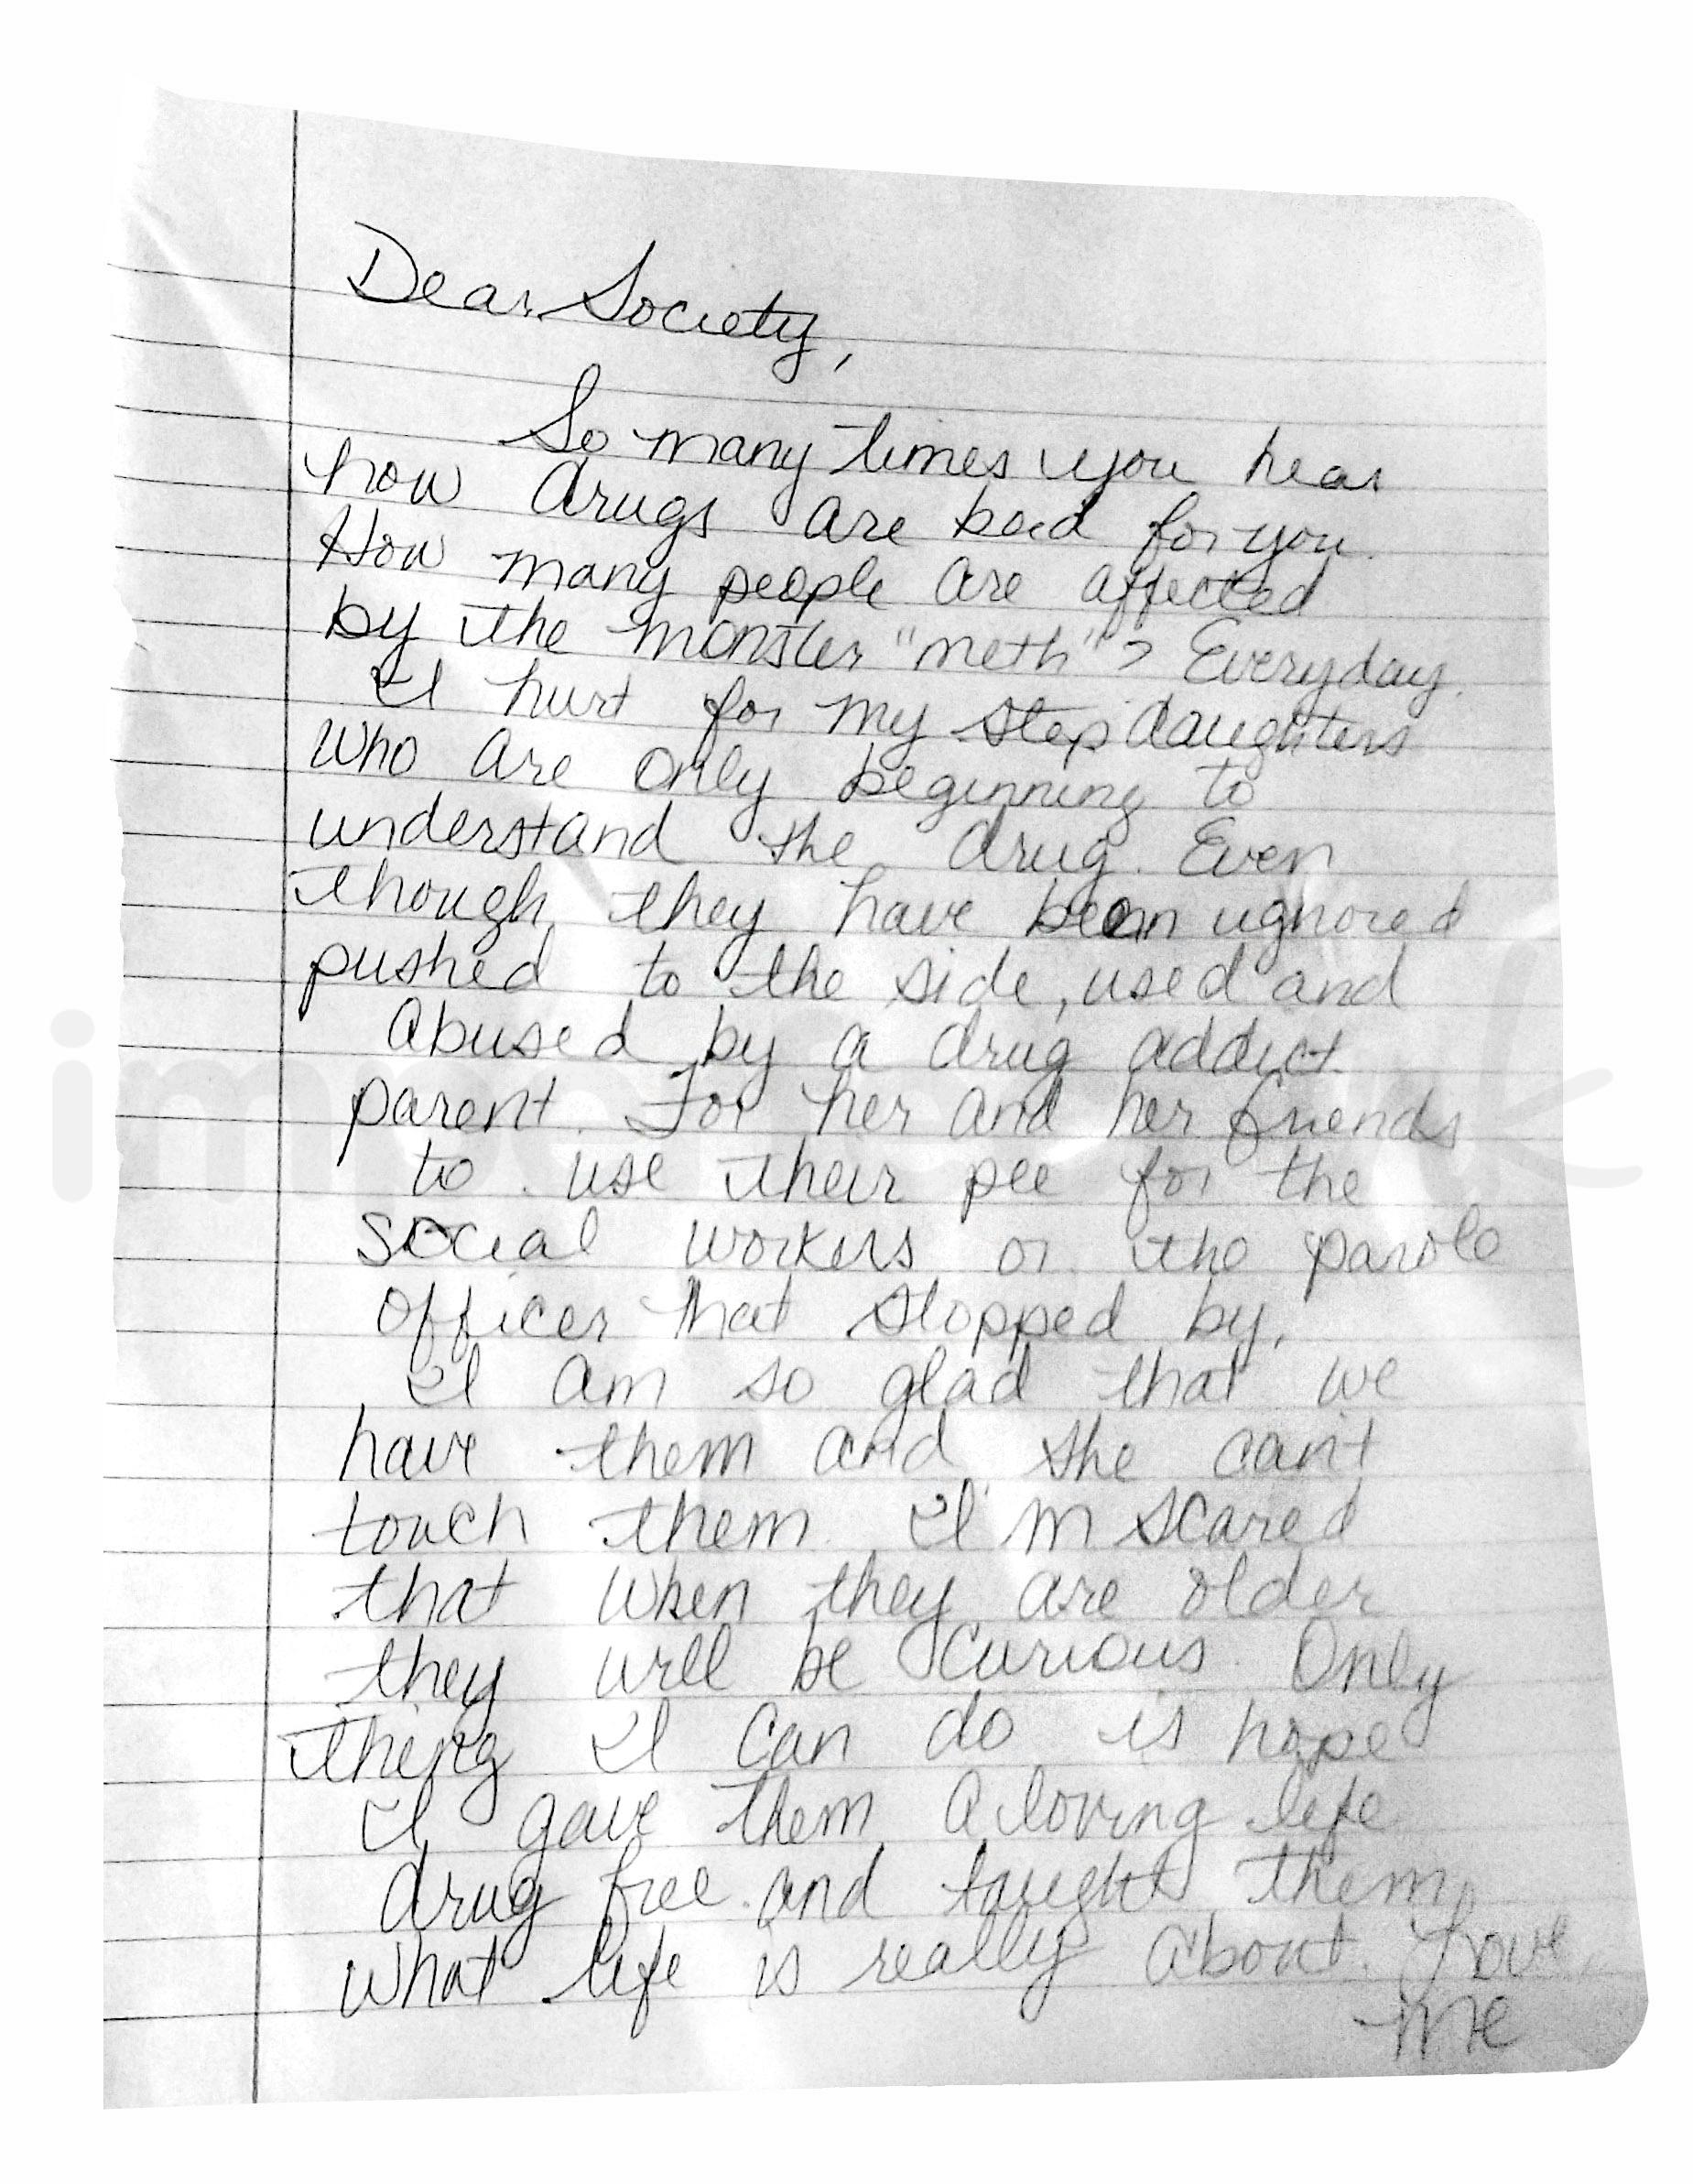 Dear Society,
So many times you hear
how drugs are bad for you.
How many people are affected
by the monster "meth"? Everyday.
I hurt for my step daughters
who are only beginning to
understand the drug. Even
though they have been ignored
pushed to the side, used and
abused by a drug addict
parent. For her and her friends
to use their pee for the
social workers or the parole
officer that stopped by.
I am so glad that we
have them and she can't
touch them. I'm scared
that when they are older
they will be curious. Only
thing I can do is hope
I gave them a loving life
drug free and taught them
what life is really about. Love,
me